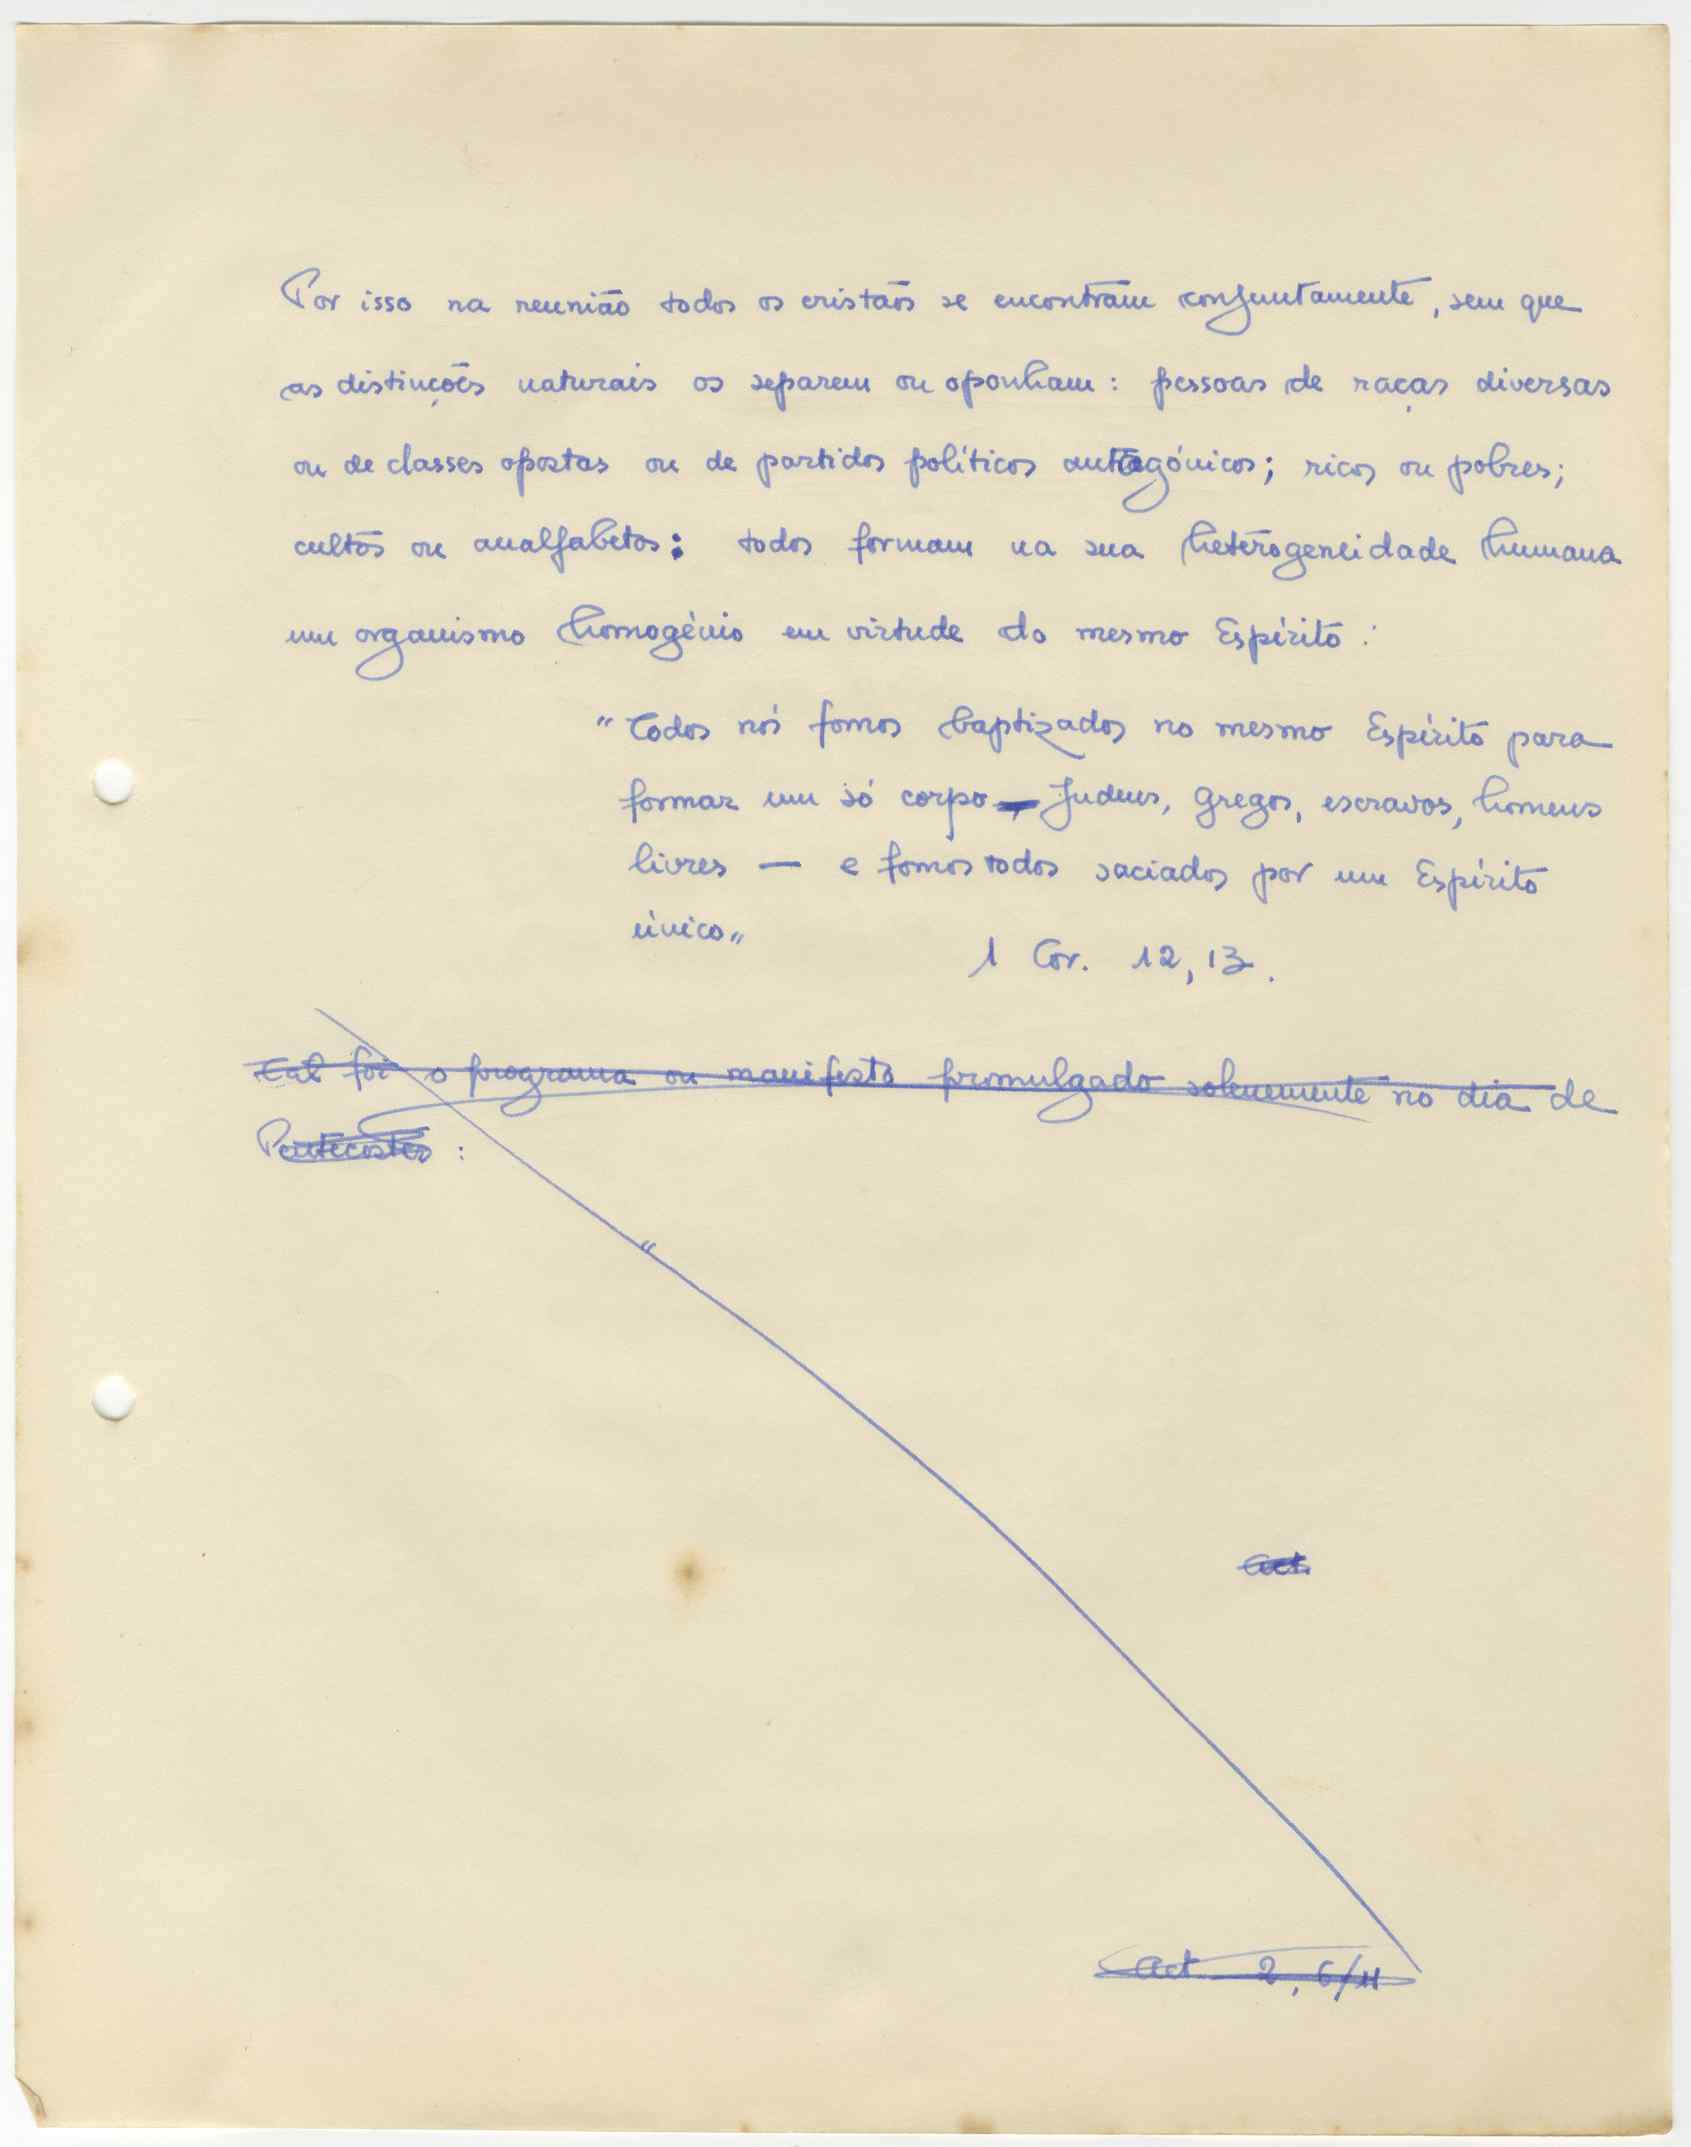 Por isso na reunião todos os cristãos se encontram conjuntamente, sem que
as distinções naturais os separem ou oponham: pessoas de raças diversas
ou de classes opostas ou de partidos políticos antagónicos; ricos ou pobres;
cultos ou analfabetos: todos formam na sua heterogeneidade humana
um organismo homogénio em virtude do mesmo Espírito:
"Todos nós fomos baptizados no mesmo Espírito para
formar um só corpo — Judeus, gregos, escravos, homens
livres — e fomos todos saciados por um Espírito
único"
1 Cor. 12, 13.
Tal foi o programa ou manifesto promulgado solenemente no dia de
Pentecostes :
"
Act.
Act 2, 6/11